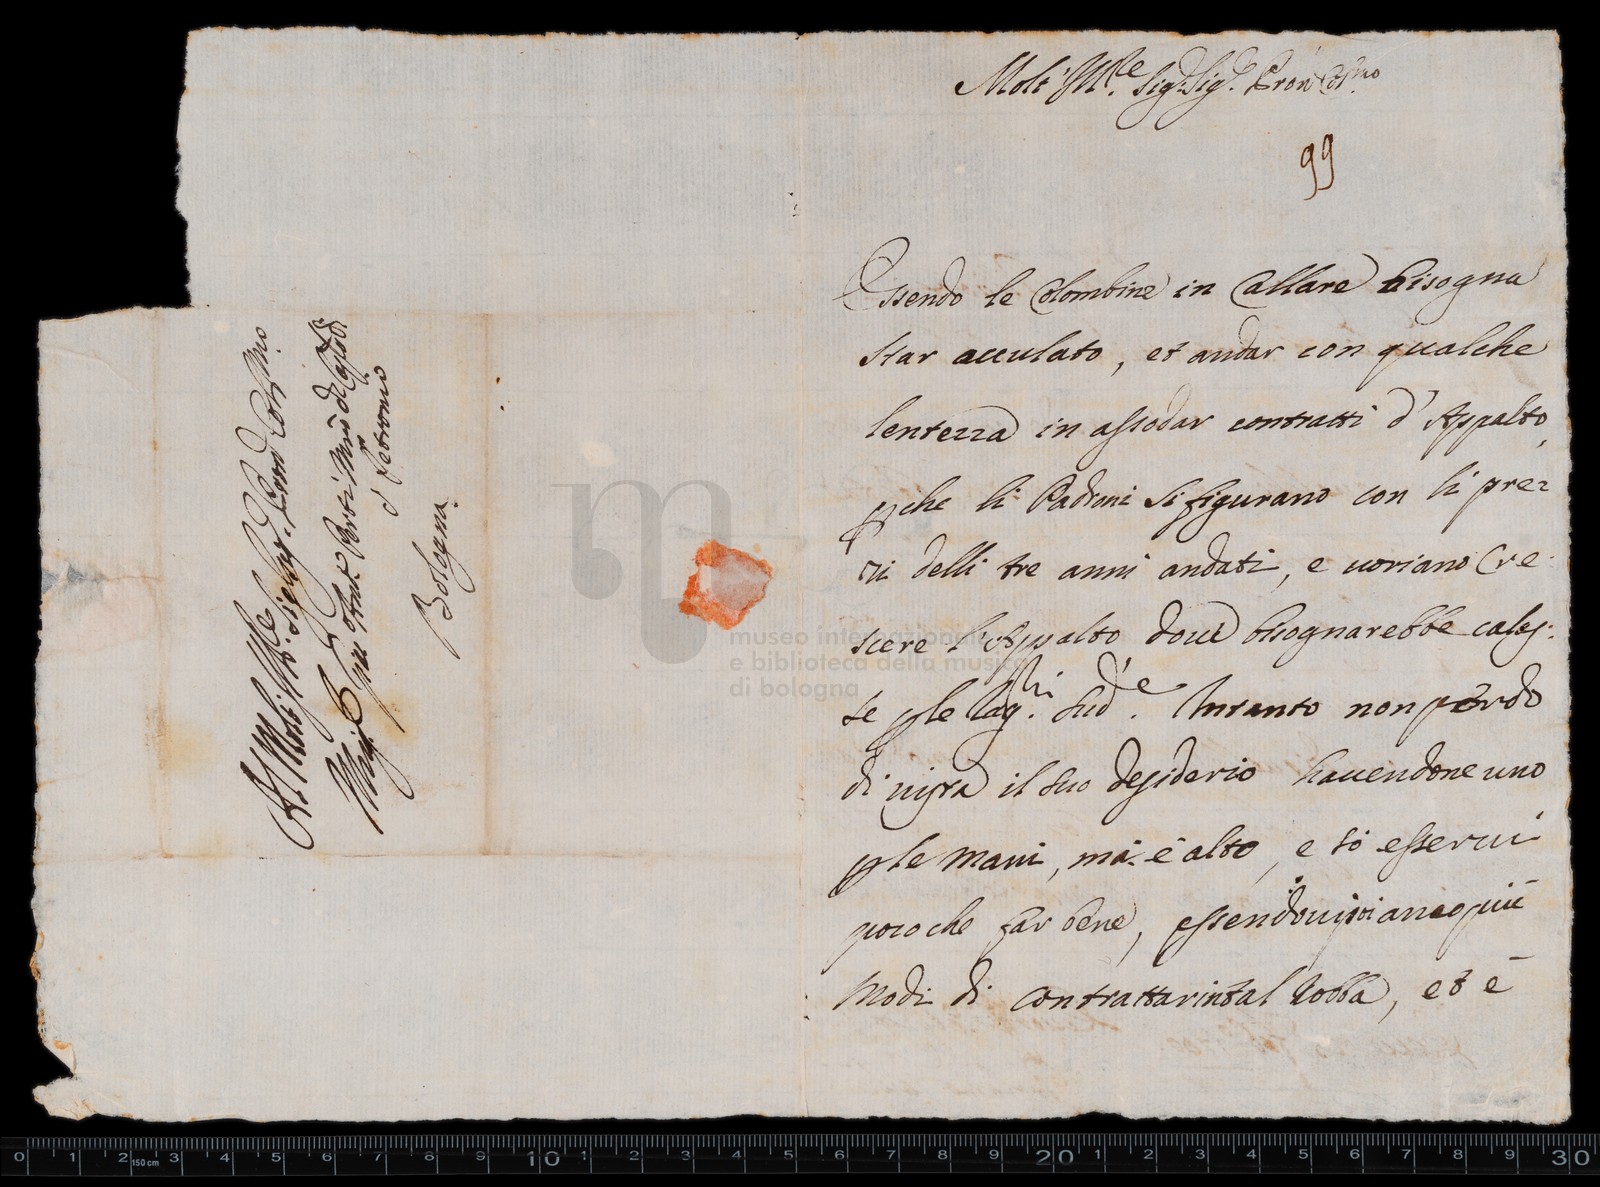 Molt' Ill.re Sig.r Sig.r Pron Col.mo
99
Essendo le Colombine in Callare bisogna
star acculato, et andar con qualche
lentezza in assodar contratti d' Appalto,
pche li Padroni si figurano con li prez
zi delli tre anni andati, e voriano Cre
scere l'Appalto doue bisognarebbe calas:
se ple Cag.ni sud.e. Intanto non perdo
di uista il suo desiderio hauendone uno
ple mani, mà è alto, e sò esserui
poco che far bene, essendoui più
modi di contrattar in tal robba, et è
Al Molt' Ill.re Sig.r Pron Col.mo
Gio: Ant.o Perti M.ro di Cap.la di
S. Petronio
Bologna
museo internazionale
e biblioteca della musica
di bologna
0 1 2 3 4 5 6 7 8 9 10 1 2 3 4 5 6 7 8 9 20 1 2 3 4 5 6 7 8 9 30
150 cm